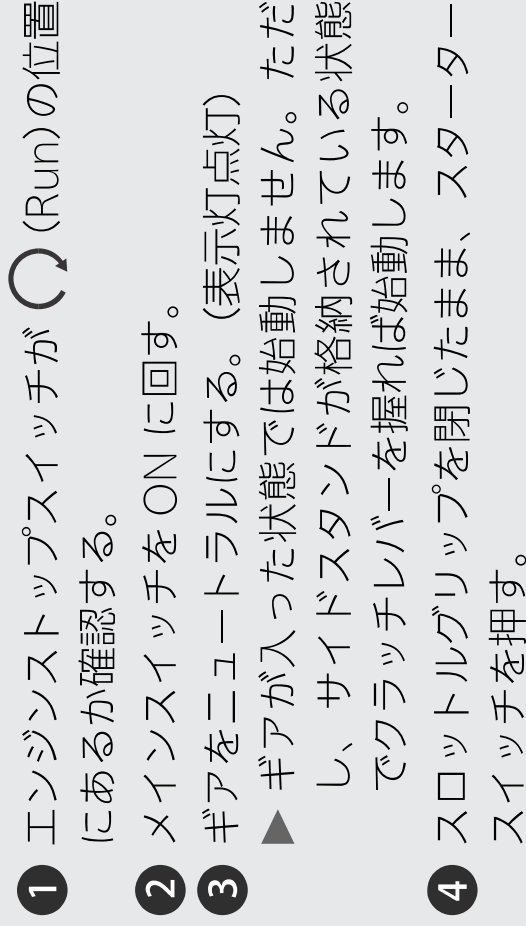 ❶ エンジンストップスイッチが (Run)の位置
にあるか確認する。
❷ メインスイッチを ON に回す。
❸ ギアをニュートラルにする。(表示灯点灯)
▲ ギアが入った状態では始動しません。ただ
し、サイドスタンドが格納されている状態
でクラッチレバーを握れば始動します。
❹ スロットルグリップを閉じたまま、スターター
スイッチを押す。